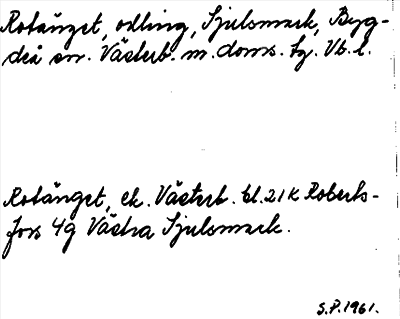 Rotänget, odling, Sjulsmark, Byg-
deå sn. Västerb. m. doms. tg. Vb. l.
Rotänget, ek. Västerb. bl. 21K Roberts-
fors 4g Västra Sjulsmark.
S.P. 1961.